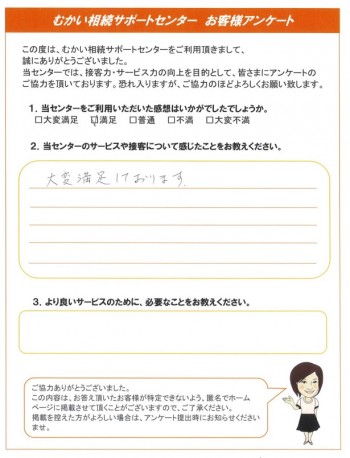 むかい相続サポートセンター お客様アンケート
この度は、むかい相続サポートセンターをご利用頂きまして、
誠にありがとうございました。
当センターでは、接客力・サービス力の向上を目的として、皆さまにアンケートの
ご協力を頂いております。恐れ入りますが、ご協力のほどよろしくお願い致します。
1．当センターをご利用いただいた感想はいかがでしたでしょうか。
□大変満足 ☑満足 □普通 □不満 □大変不満
2．当センターのサービスや接客について感じたことをお教えください。
大変満足しております。
3．より良いサービスのために、必要なことをお教えください。
ご協力ありがとうございました。
この内容は、お答え頂いたお客様が特定できないよう、匿名でホーム
ページに掲載させて頂くことがございますので、ご了承ください。
掲載を控えた方がよろしい場合は、アンケート提出時にお知らせください
ませ。